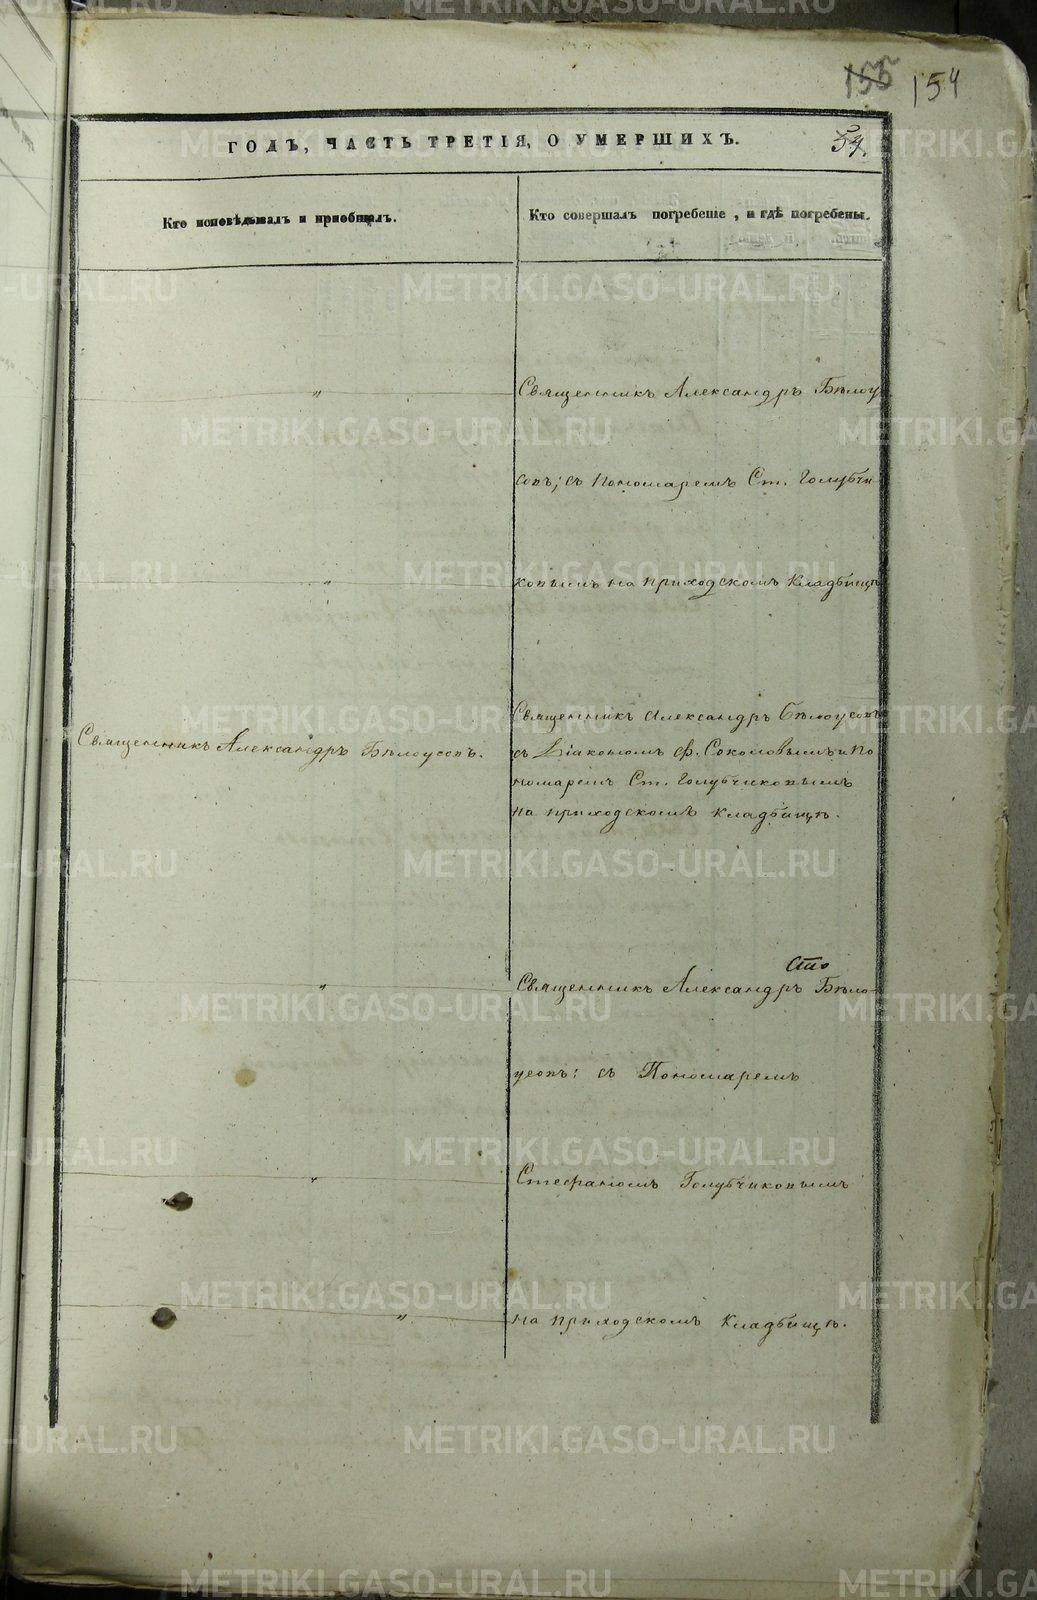 155 154
ГОДЪ, ЧАСТЬ ТРЕТІЯ, О УМЕРШИХЪ.
54.
Кто исповѣдывалъ и пріобщалъ.
Кто совершалъ погребеніе, и гдѣ погребены.
" Священникъ Александръ Бѣлоу
совъ; съ Пономаремъ Ст. Голубчи
" ковымъ на приходскомъ кладбищѣ
Священникъ Александръ Бѣлоусовъ
Священникъ Александръ Бѣлоусовъ.
съ Діакономъ Ф. Соколовымъ и По
номаремъ Ст. Голубчиковымъ
на приходскомъ кладбищѣ.
" Священникъ Александръ Бѣло-
усовъ: съ Пономаремъ
" Стефаномъ Голубчиковымъ
" на приходскомъ кладбищѣ.
METRIKI.GASO-URAL.RU